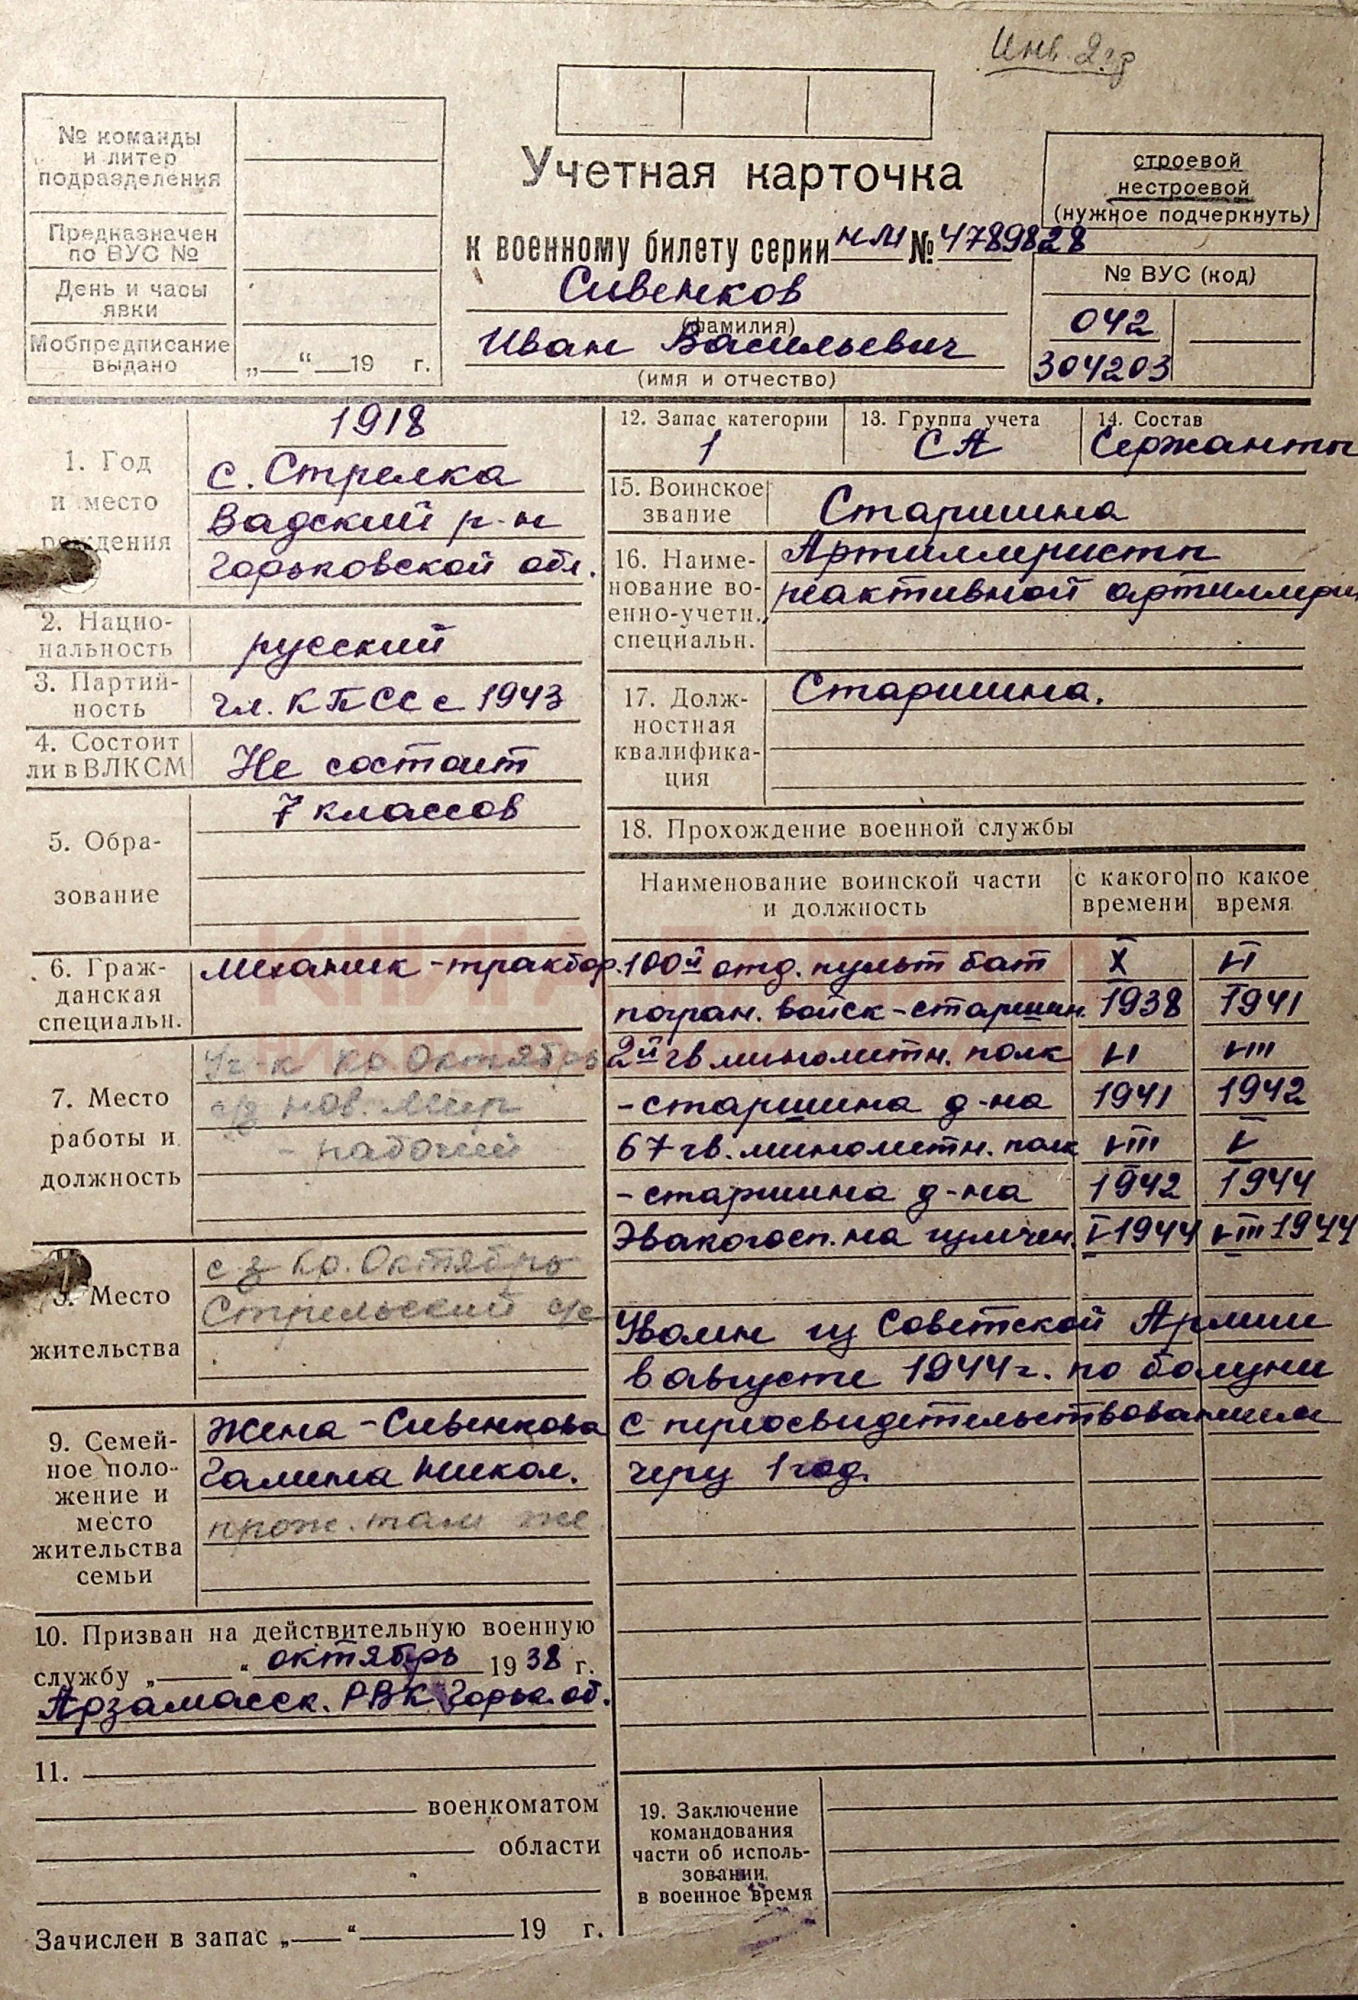 Инв. 2 гр
№ команды
и литер
подразделения
Предназначен
по ВУС №
День и часы
явки
Мобпредписание
выдано
„ “ 19 г.
Учетная карточка
к военному билету серии НЛ № 4789828
Сивенков
(фамилия)
Иван Васильевич
(имя и отчество)
строевой
нестроевой
(нужное подчеркнуть)
№ ВУС (код)
042
304203
1. Год
и место
рождения
1918
с. Стрелка
Вадский р-н
Горьковской обл.
2. Нацио-
нальность
русский
3. Партий-
ность
чл. КПСС с 1943
4. Состоит
ли в ВЛКСМ
Не состоит
5. Обра-
зование
7 классов
6. Граж-
данская
специальн.
механик-трактор.
7. Место
работы и
должность
к кр. Октябрь
нов. Мир
- рабочий
8. Место
жительства
с-з Кр. Октябрь
Стрельский с/с
9. Семей-
ное поло-
жение и
место
жительства
семьи
Жена - Сивенкова
Галина Никол.
прож. там же
10. Призван на действительную военную
службу „ “ октябрь 1938 г.
Арзамасск. РВК Горьк. об.
11.
военкоматом
области
Зачислен в запас „ “ 19 г.
12. Запас категории
1
13. Группа учета
СА
14. Состав
Сержанты
15. Воинское
звание
Старшина
16. Наиме-
нование во-
енно-учетн.
специальн.
Артиллеристы
реактивной артиллерии
17. Долж-
ностная
квалифика-
ция
Старшина.
18. Прохождение военной службы
Наименование воинской части
и должность
с какого
времени
по какое
время
100й отд. пульт бат X VI
погран. войск - старшин. 1938 1941
2й гв минометн. полк VI VIII
- старшина д-на 1941 1942
67 гв. минометн. полк VIII V
- старшина д-на 1942 1944
Эвакогосп. на излечен. V 1944 VIII 1944
Уволен из Советской Армии
в августе 1944 г. по болезни
с переосвидетельствованием
через 1 год.
19. Заключение
командования
части об исполь-
зовании
в военное время
КНИГА ПАМЯТИ